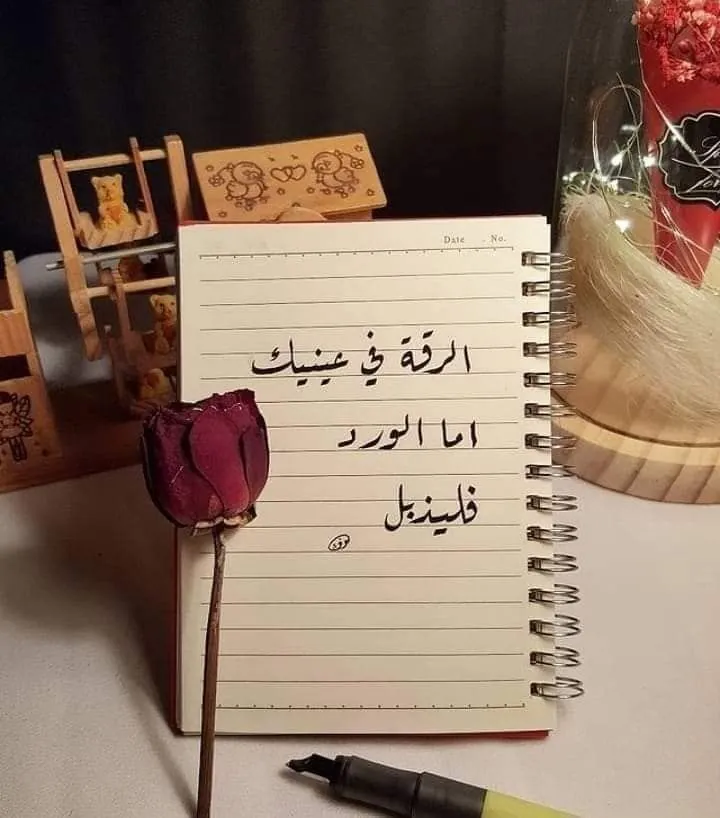 Date . No.
الرقة في عينيك
اما الورد
فليذبل